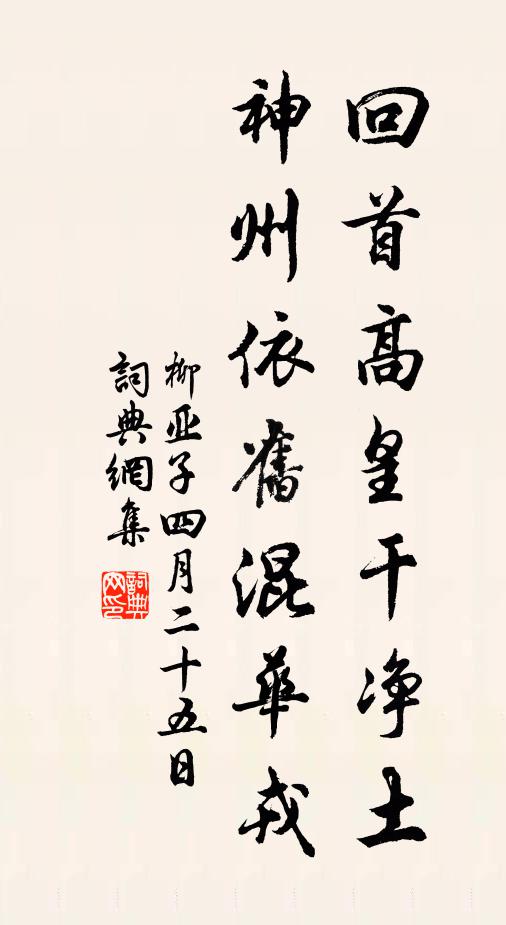 回首高皇干净土
神州依舊混華戎
柳亚子四月二十五日
詞典網集
詞典网印